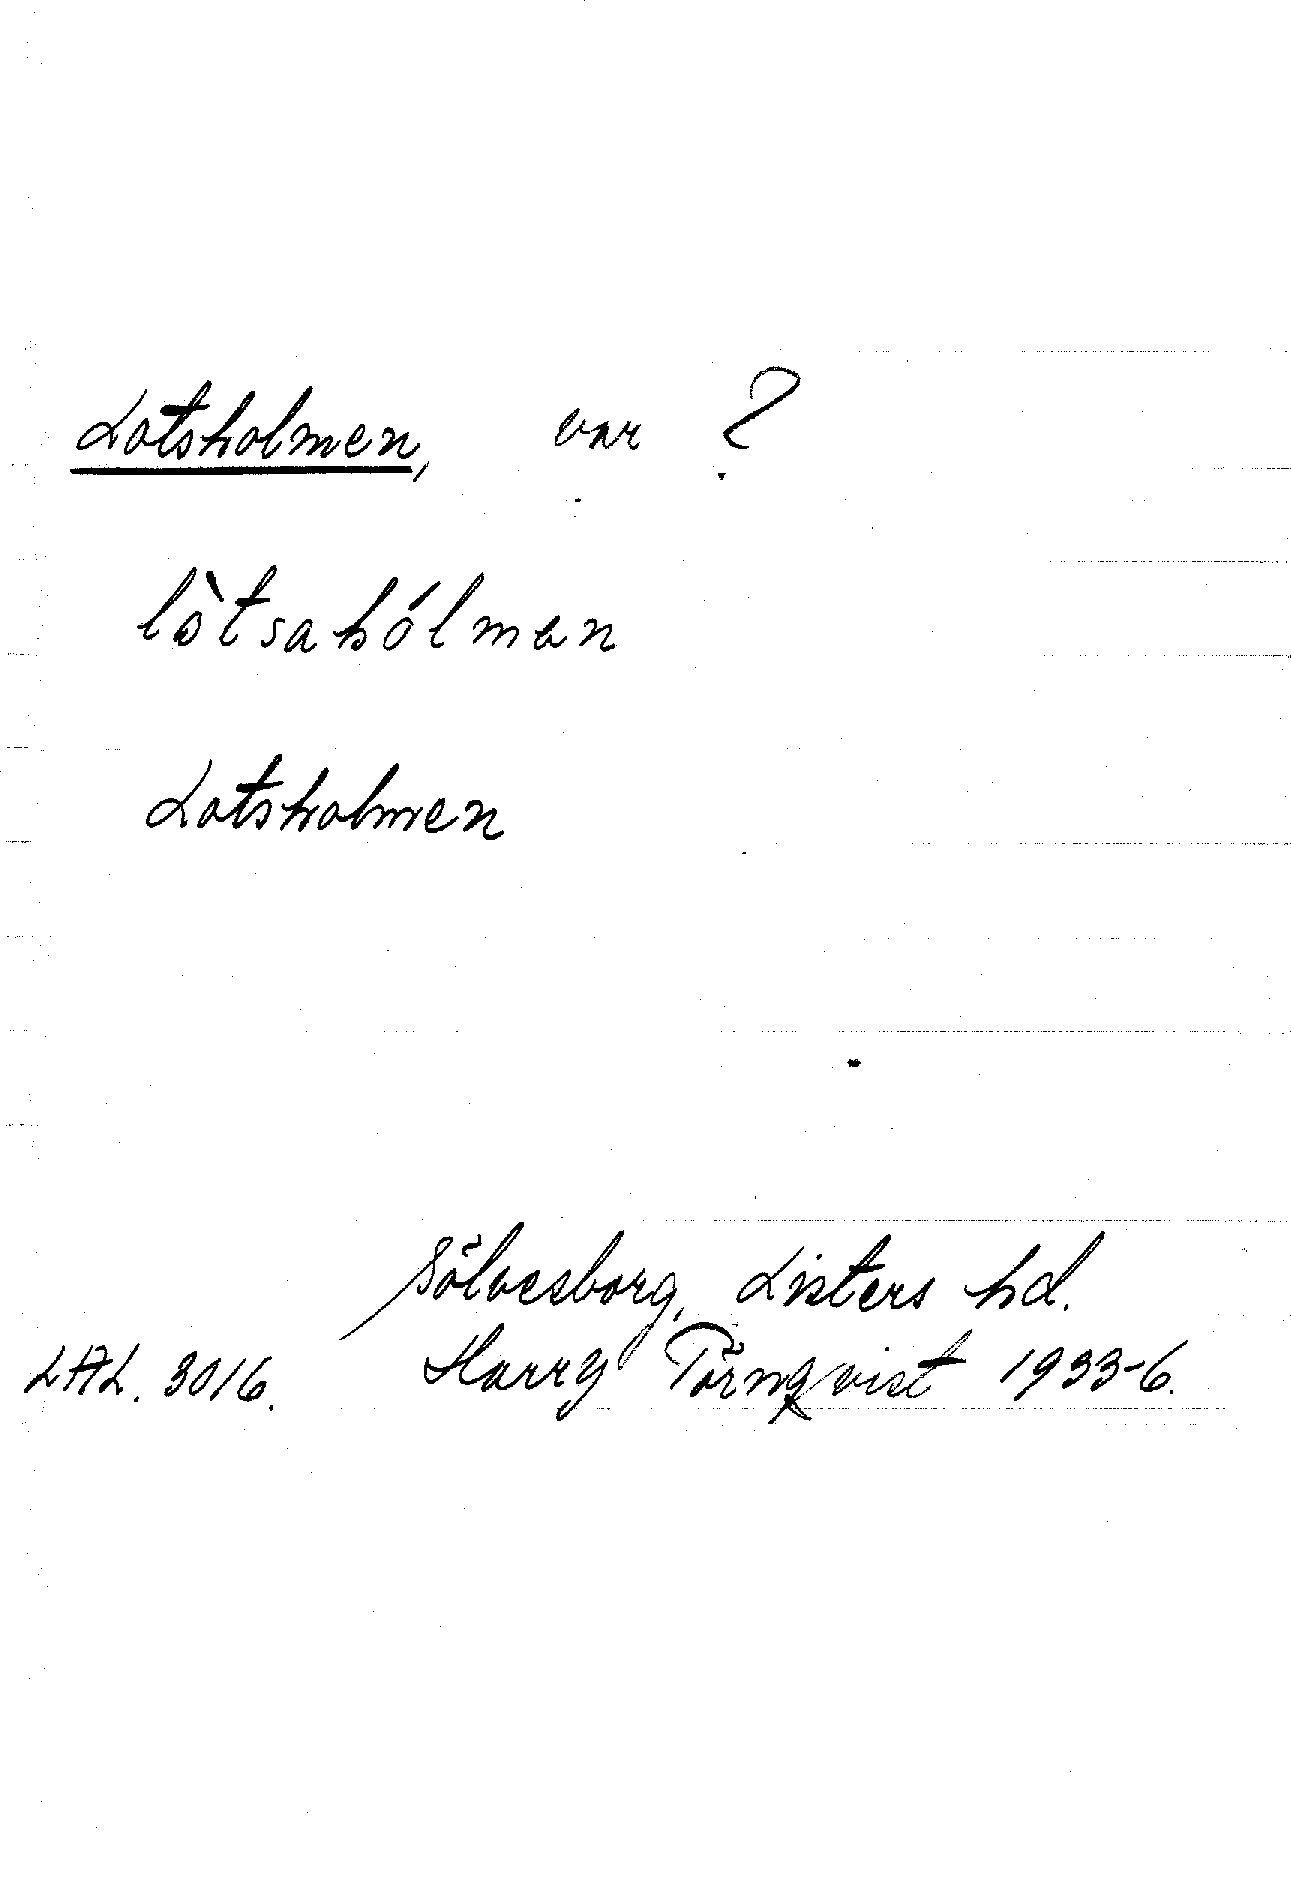 Lotsholmen, var ?
lòtsahólmən
Lotsholmen
Sölvesborg, Listers hd.
LAL. 3016. Harry Törnqvist 1933-6.